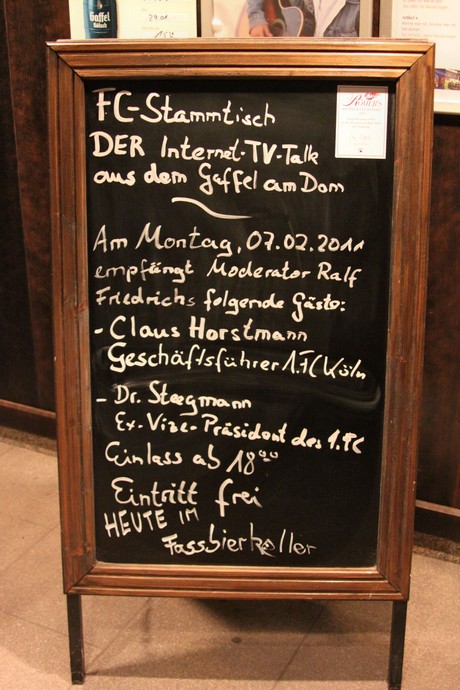 Gaffel
FC-Stammtisch
DER Internet-TV-Talk
aus dem Gaffel am Dom
Am Montag, 07.02.2011
empfängt Moderator Ralf
Friedrichs folgende Gäste:
- Claus Horstmann
Geschäftsführer 1.FC Köln
- Dr. Stegmann
Ex-Vize-Präsident des 1.FC
Einlass ab 18 00
Eintritt frei
HEUTE IM
Fassbierkeller